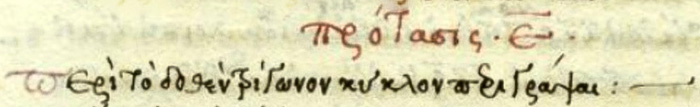 πρότασις · ε ·
Περὶ τὸ δοθὲν τρίγωνον κύκλον περιγράψαι : —